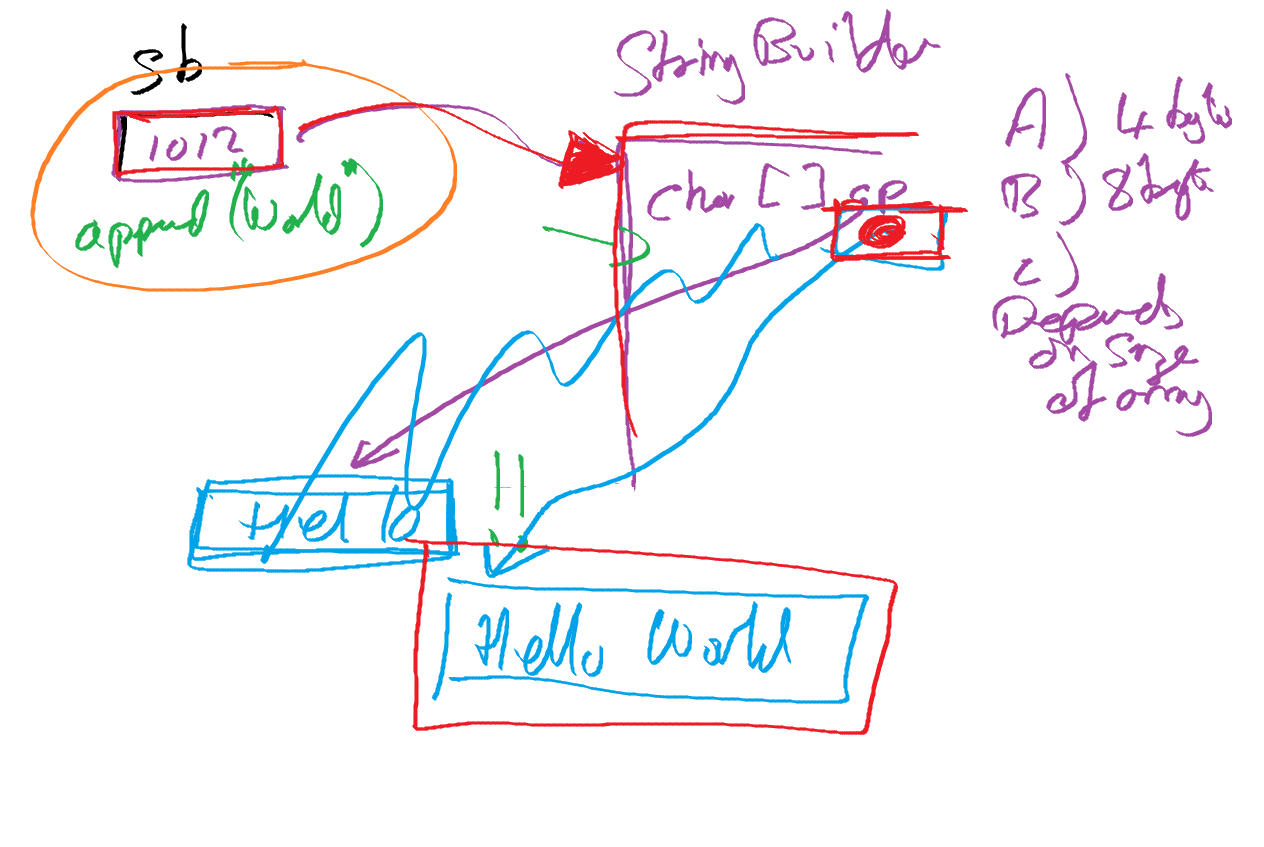 sb
1012
append("World")
StringBuilder
char[] cp
A) 4 byts
B) 8 byts
C)
Depends
on Size
of array
Hello
Hello World